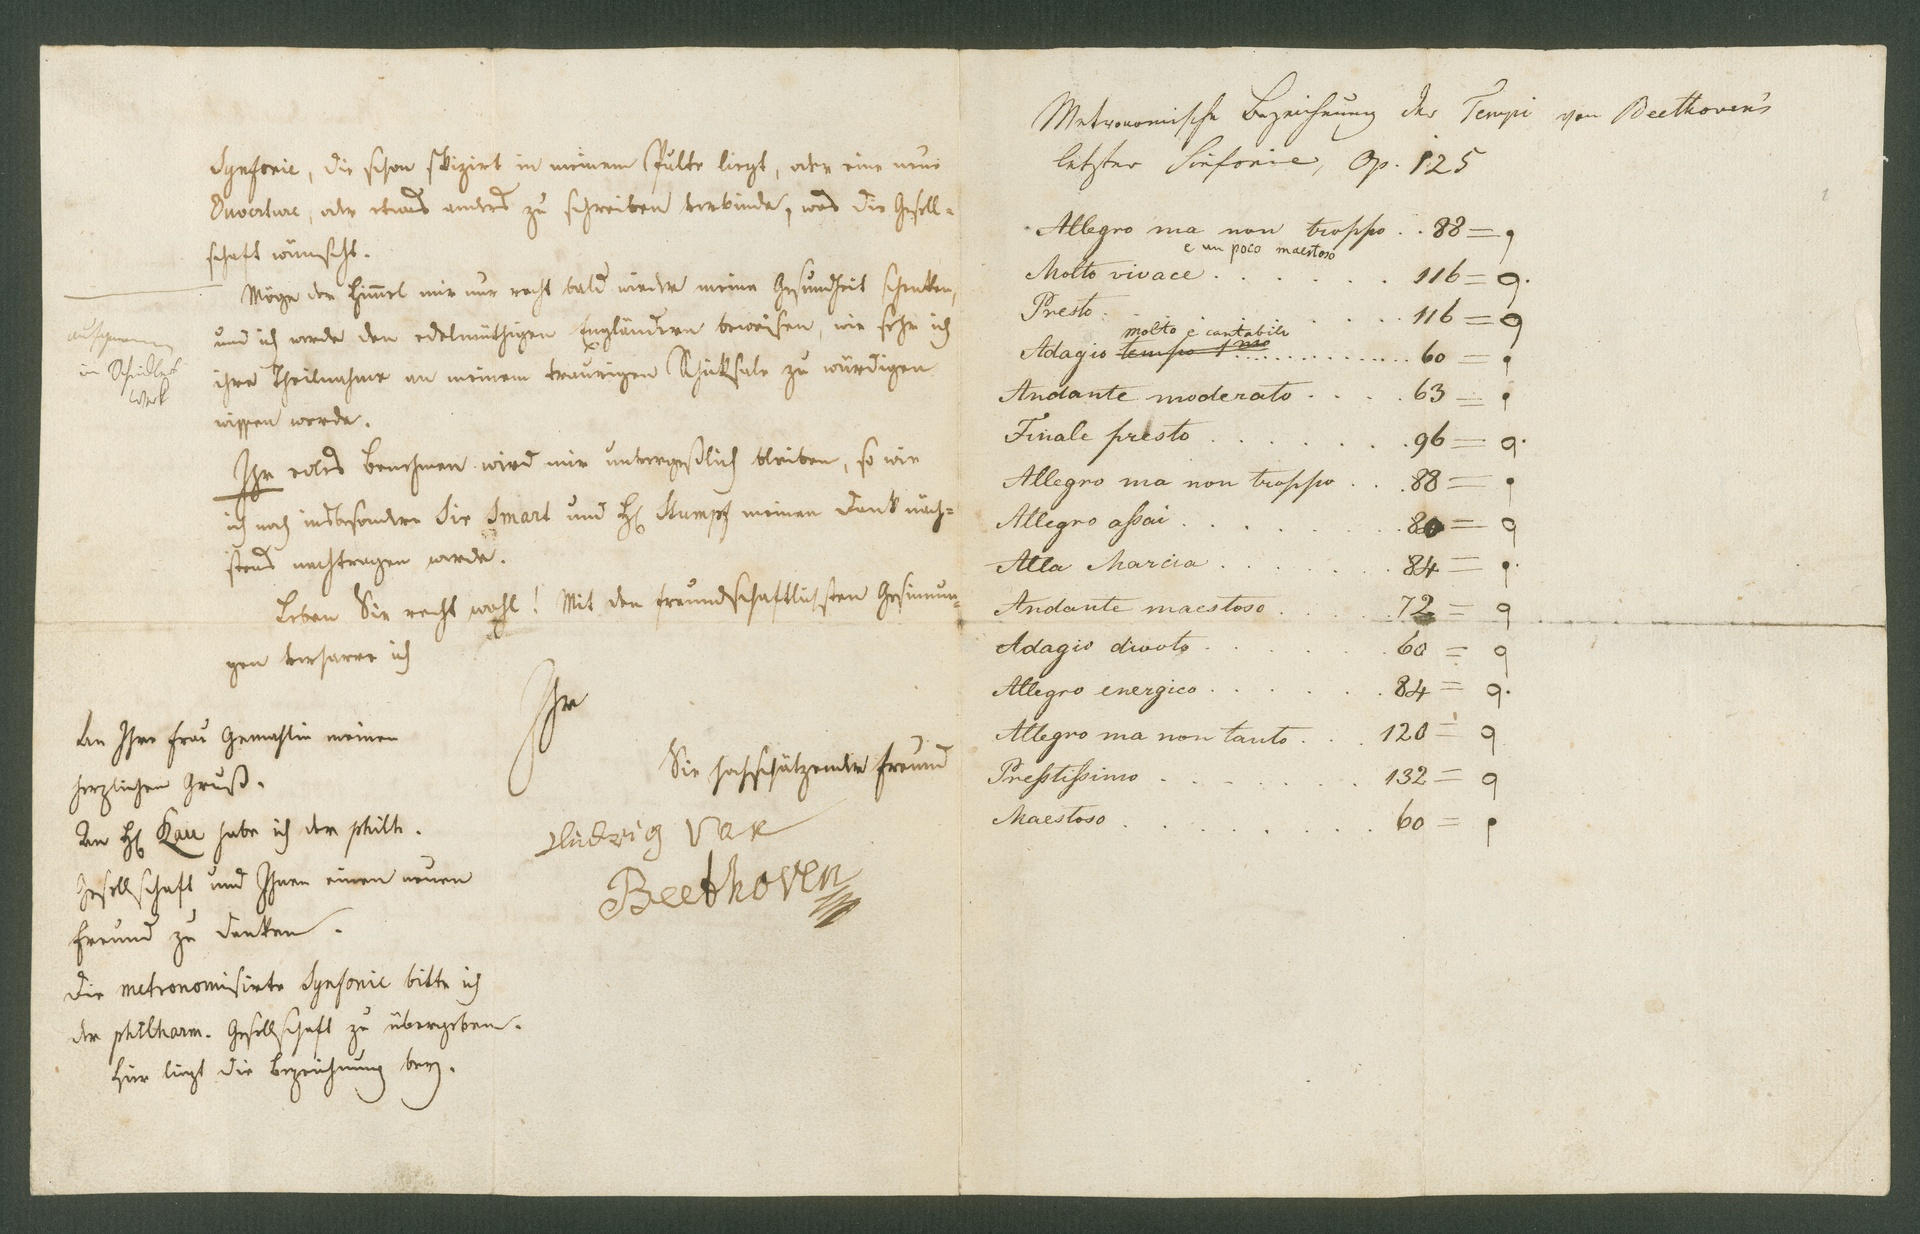 Synfonie, die schon skizirt in meinem Pulte liegt, oder eine neue
Ouverture, oder etwas anders zu schreiben verbinde, was die Gesell=
schaft wünscht.
Möge der Himel mir nur recht bald wieder meine Gesundheit schenken,
und ich werde den edelmüthigen Engländern beweisen, wie sehr ich
ihre Theilnahme an meinem traurigen Schicksale zu würdigen
wissen werde.
in Schindlers
Werk
Ihr edles Benehmen wird mir unvergeßlich bleiben, so wie
ich noch insbesondere Sir Smart und H. Stumpff meinen Dank näch=
stens nachtragen werde.
Leben Sie recht wohl! Mit den freundschaftlichsten Gesinnun=
gen verharre ich
Ihr
Sie hochschätzender Freund
Ludwig van
Beethoven
An Ihre Frau Gemahlin meinen
herzlichen Gruß.
An H. Rau habe ich der philh.
Gesellschaft und Ihnen einen neuen
Freund zu danken.
Die metronomisirte Synfonie bitte ich
der philharm. Gesellschaft zu übergeben.
Hier liegt die Bezeichnung bey.
Metronomische Bezeichnung der Tempi von Beethoven's
letzter Sinfonie, Op. 125
Allegro ma non troppo . . 88 = 𝅘𝅥
e un poco maestoso
Molto vivace . . . . . . 116 = 𝅗𝅥.
Presto . . . . . . 116 = 𝅗𝅥
molto e cantabile
Adagio tempo 1mo . . . . . . 60 = 𝅘𝅥
Andante moderato . . . . 63 = 𝅘𝅥
Finale presto . . . . . . 96 = 𝅗𝅥.
Allegro ma non troppo . . . 88 = 𝅘𝅥
Allegro assai . . . . . . 80 = 𝅗𝅥
Alla Marcia . . . . . . 84 = 𝅘𝅥.
Andante maestoso . . . . 72 = 𝅗𝅥
Adagio divoto . . . . . . 60 = 𝅗𝅥
Allegro energico . . . . . . 84 = 𝅗𝅥.
Allegro ma non tanto . . . 120 = 𝅗𝅥
Prestissimo . . . . . . 132 = 𝅗𝅥
Maestoso . . . . . . . . 60 = 𝅘𝅥